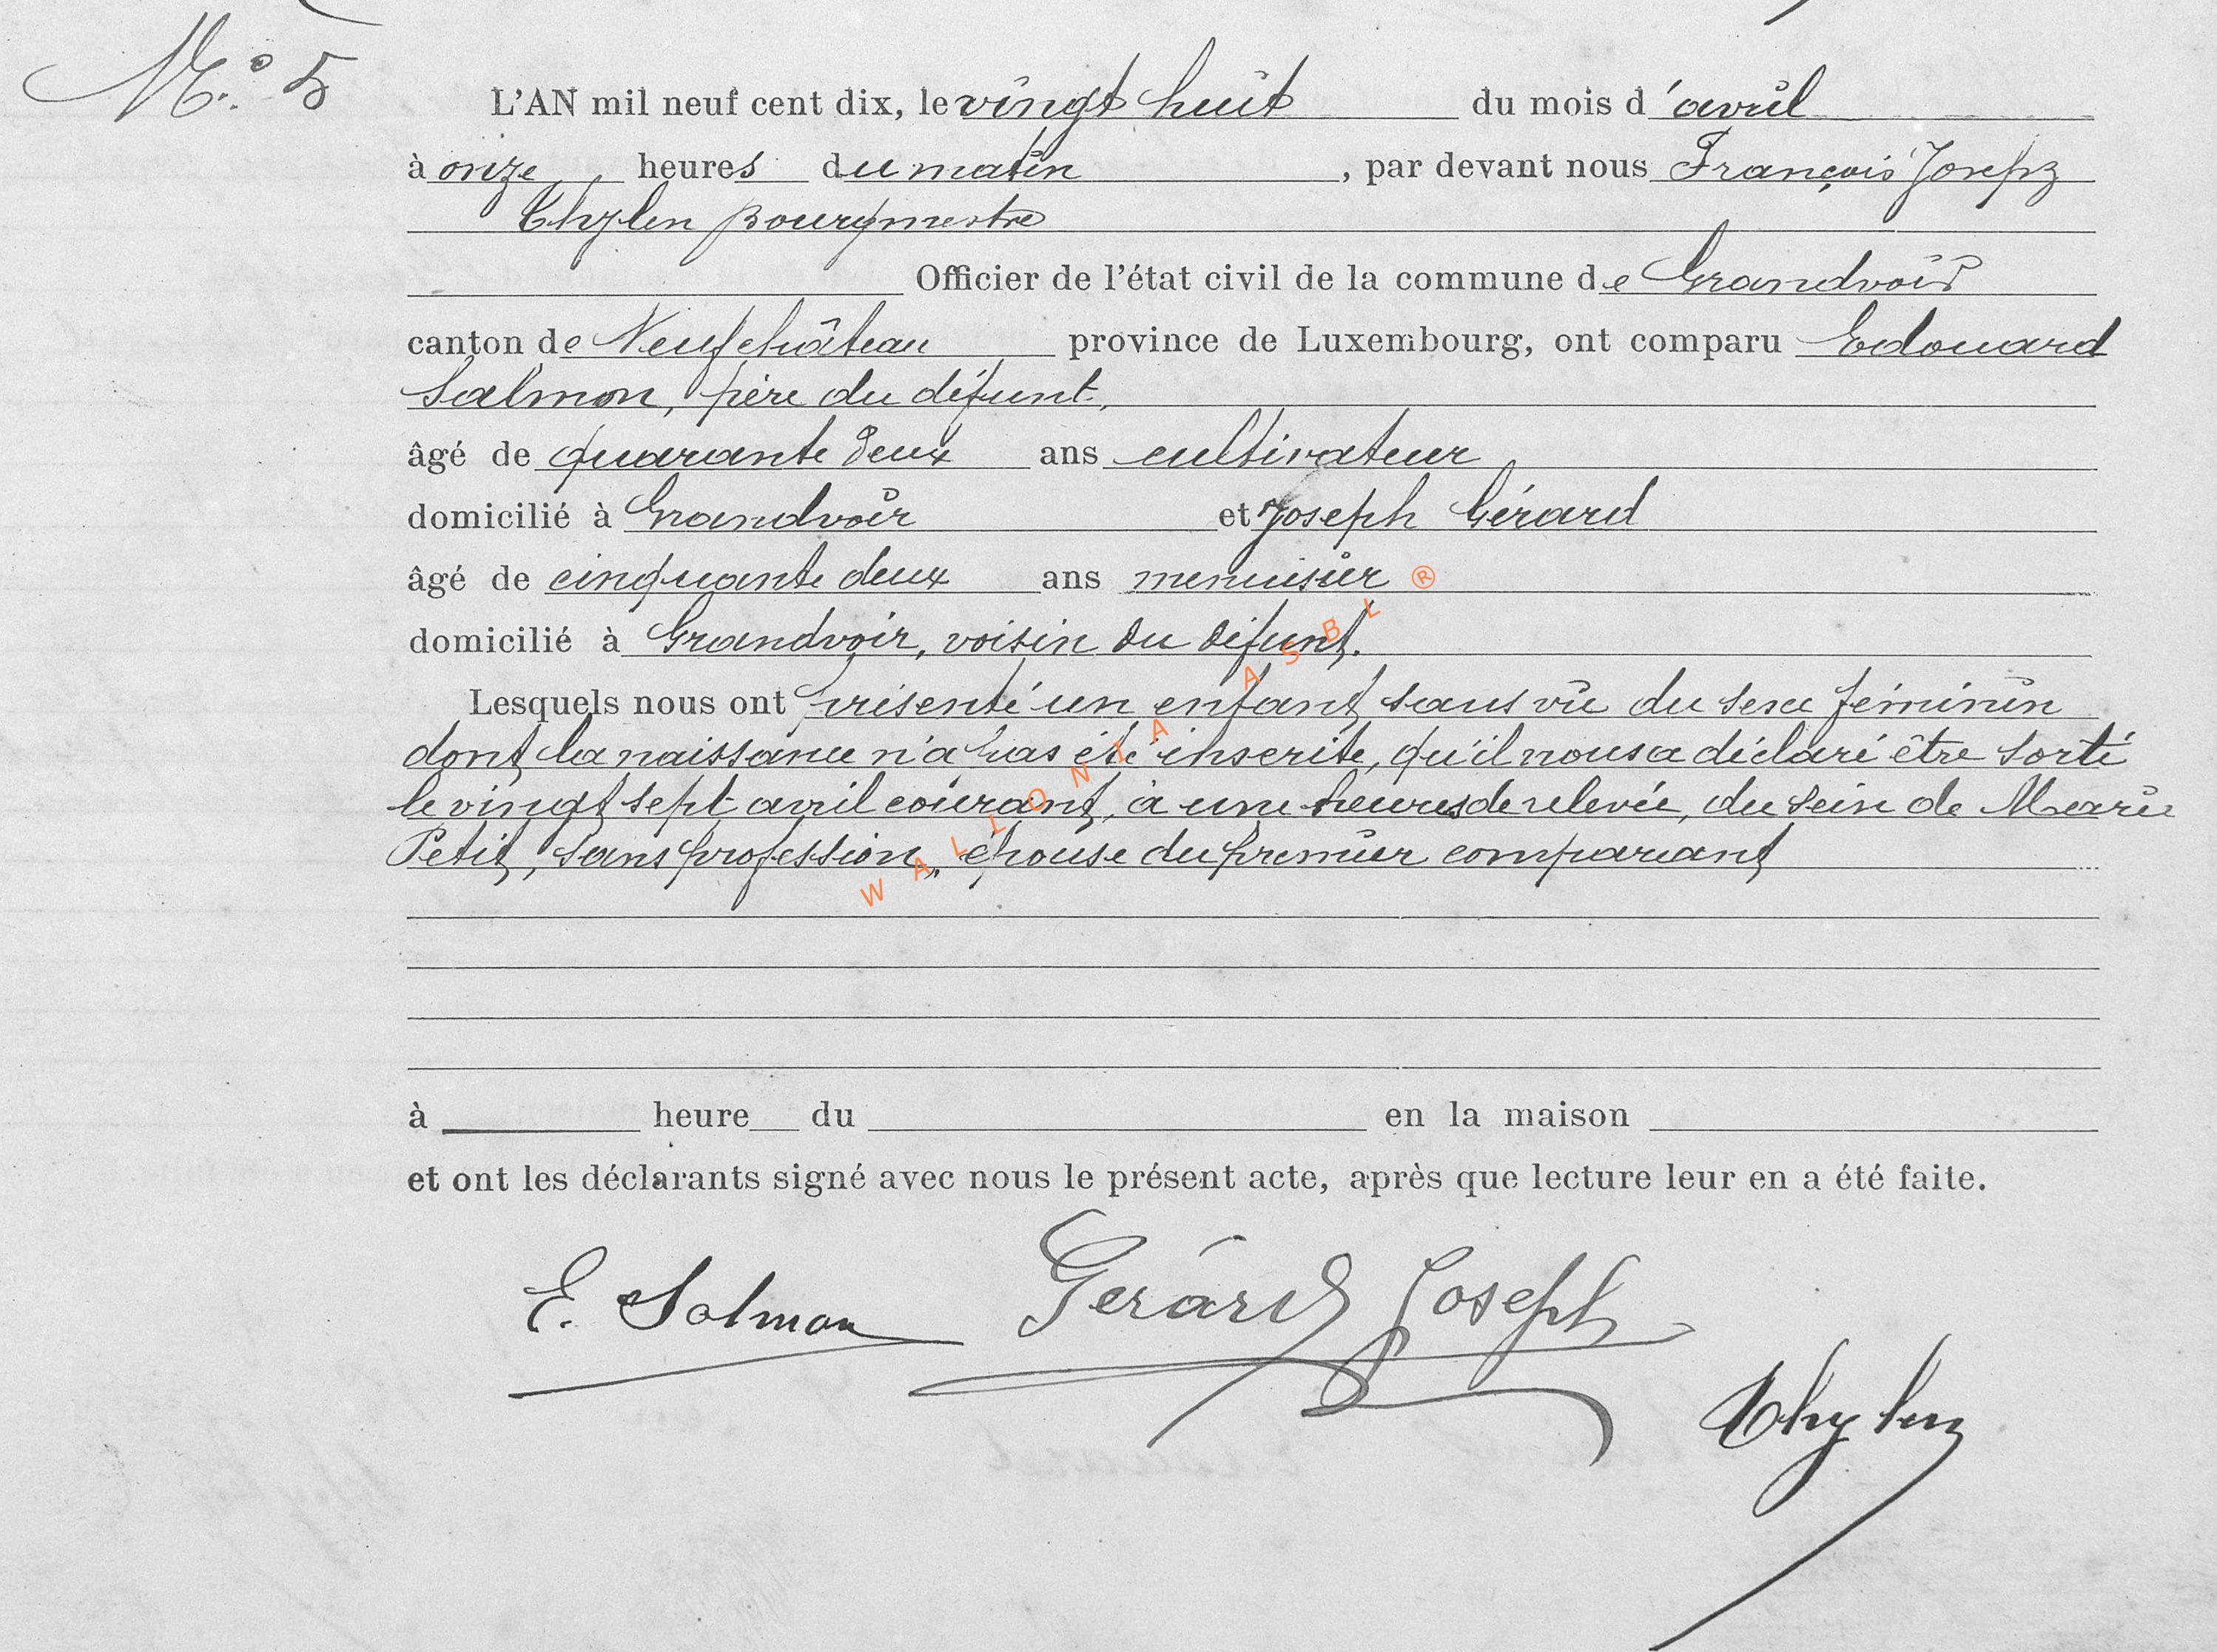 N.° 5
L'AN mil neuf cent dix, le vingt huit du mois d'avril
à onze heures du matin, par devant nous François Joseph
Thylen Bourgmestre
Officier de l'état civil de la commune de Grandvoir
canton de Neufchâteau province de Luxembourg, ont comparu Edouard
Salmon, père du défunt,
âgé de quarante deux ans cultivateur
domicilié à Grandvoir et Joseph Gérard
âgé de cinquante deux ans menuisier
domicilié à Grandvoir, voisin du défunt.
Lesquels nous ont présenté un enfant sans vie du sexe féminin
dont la naissance n'a pas été inscrite, qu'il nous a déclaré être sorti
le vingt sept avril courant, à une heures de relevée, du sein de Marie
Petit, sans profession, épouse du premier comparant
à heure du en la maison
et ont les déclarants signé avec nous le présent acte, après que lecture leur en a été faite.
E. Salmon Gérard Joseph
Thylen
WALLONIA ASBL ®